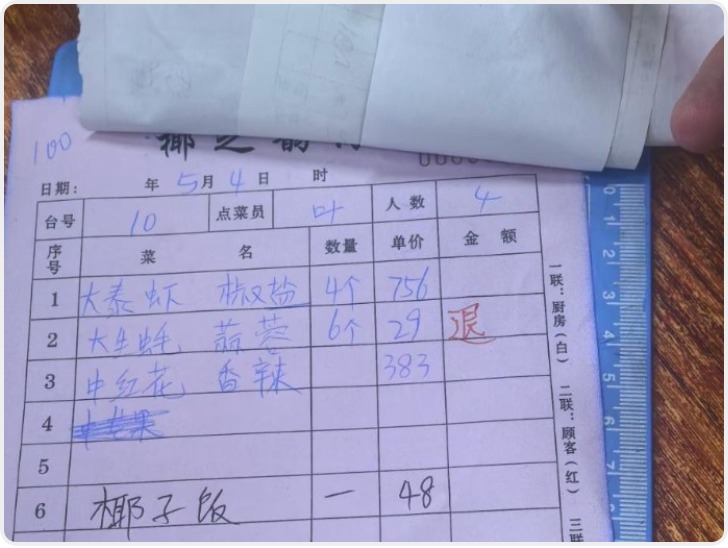 100
椰之韵
日期: 年 5月 4日 时
台号 10 点菜员 叶 人数 4
序号 菜名 数量 单价 金额
1 大泰虾 椒盐 4个 756
2 大生蚝 蒜蓉 6个 29 退
3 中红花 香辣 383
4
5
6 椰子饭 一 48
一联:厨房(白)
二联:顾客(红)
三联
0 1 2 3 4 5 6 7 8